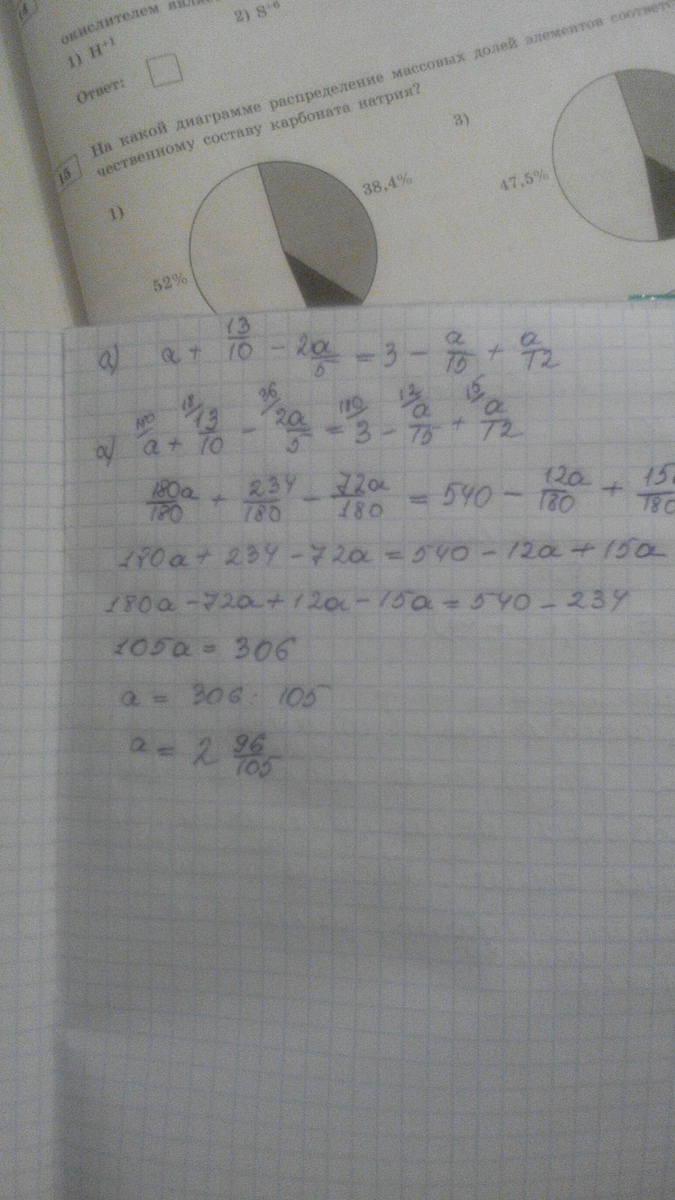 14
окислителем
1) H⁺¹ 2) S⁺⁶
Ответ:
15 На какой диаграмме распределение массовых долей элементов
чественному составу карбоната натрия?
1) 3)
38,4%
47,5%
52%
а) a + 13/10 - 2a/5 = 3 - a/15 + a/12
а) 180/ a + 18/ 13/10 - 36/ 2a/5 = 180/ 3 - 12/ a/15 + 15/ a/12
180a/180 + 234/180 - 72a/180 = 540 - 12a/180 + 15a/180
180a + 234 - 72a = 540 - 12a + 15a
180a - 72a + 12a - 15a = 540 - 234
105a = 306
a = 306 : 105
a = 2 96/105